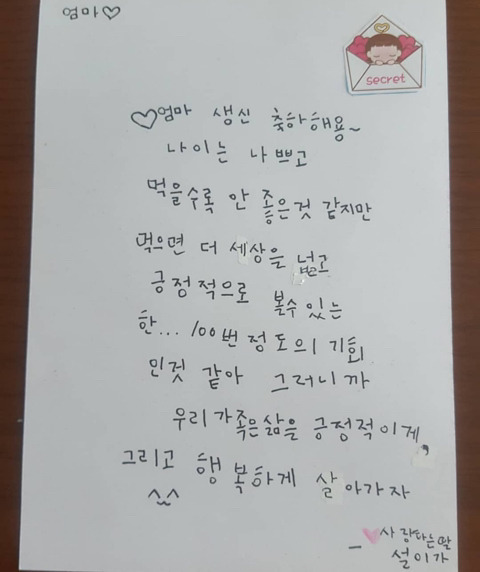 엄마♡
secret
♡엄마 생신 축하해용~
나이는 나쁘고
먹을수록 안 좋은것 같지만
먹으면 더 세상을 넓고
긍정적으로 볼수 있는
한... 100번 정도의 기회
인것 같아 그러니까
우리가족은 삶을 긍정적이게,
그리고 행복하게 살아가자
^^
- ♥사랑하는딸
설이가